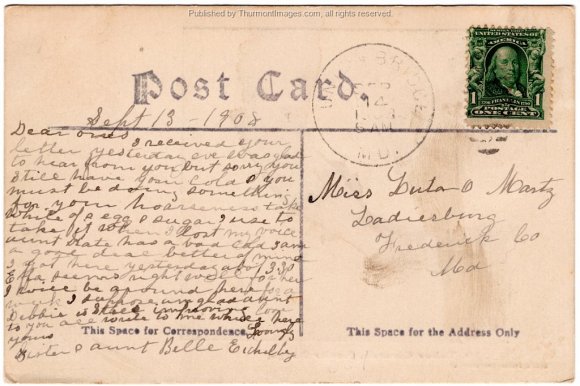 Published by ThurmontImages.com, all rights reserved.
Post Card.
UNITED STATES OF
AMERICA
1 1
POSTAGE
ONE CENT
BRIDGE
14
AM
MD.
Sept 13 - 1908
Dear ones
I received your
letter yesterday eve was glad
to hear from you but sorry you
still have your cold & you
must be doing something
for your hoarseness take
white of egg & sugar I use to
take it when I lost my voice
aunt Kate has a bad cold I am
a good deal better of mine
I got here yesterday about
seems
be around here for a
I suppose am glad about
Debbie is still improving love
to you all write to me while here
yours Lovingly
Sister & aunt Belle Eichelby
This Space for Correspondence
Miss Lula O Martz
Ladiesburg
Frederick Co
Md
This Space for the Address Only